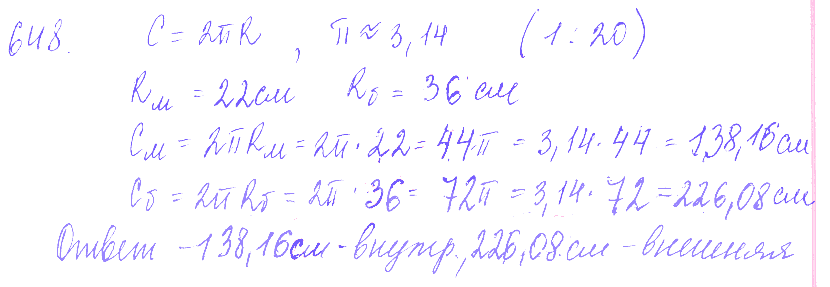 648. C = 2πR, π ≈ 3,14 (1 : 20)
Rм = 22см Rб = 36 см
Cм = 2πRм = 2π · 22 = 44π = 3,14 · 44 = 138,16см
Cб = 2πRб = 2π · 36 = 72π = 3,14 · 72 = 226,08см
Ответ - 138,16см - внутр., 226,08см - внешняя